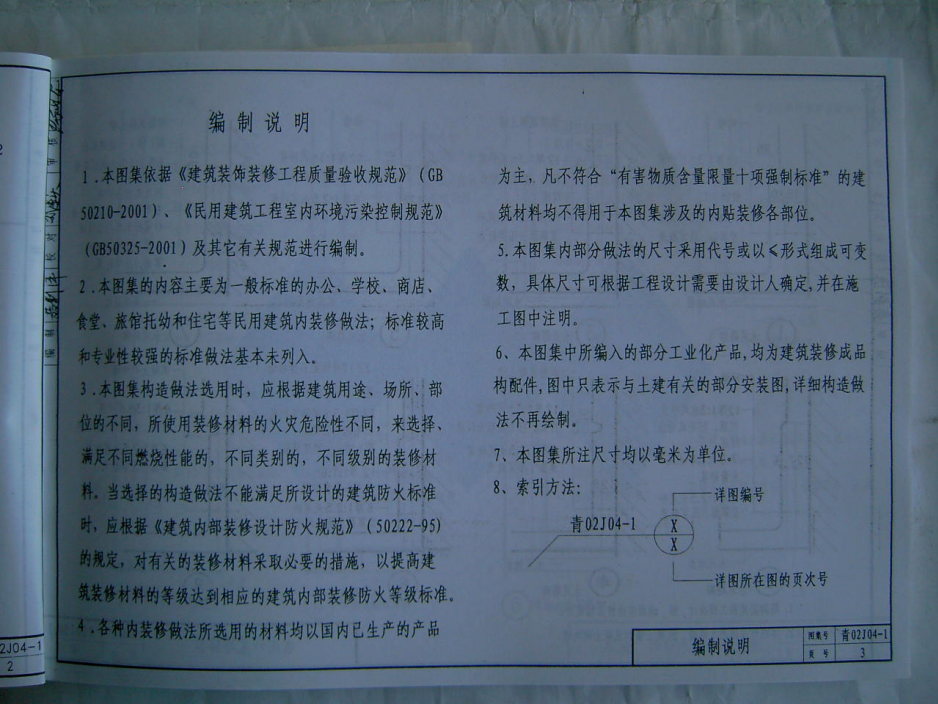 编制说明
1.本图集依据《建筑装饰装修工程质量验收规范》(GB
50210-2001)、《民用建筑工程室内环境污染控制规范》
(GB50325-2001)及其它有关规范进行编制。
2.本图集的内容主要为一般标准的办公、学校、商店、
食堂、旅馆托幼和住宅等民用建筑内装修做法;标准较高
和专业性较强的标准做法基本未列入。
3.本图集构造做法选用时，应根据建筑用途、场所、部
位的不同，所使用装修材料的火灾危险性不同，来选择、
满足不同燃烧性能的，不同类别的，不同级别的装修材
料。当选择的构造做法不能满足所设计的建筑防火标准
时，应根据《建筑内部装修设计防火规范》(50222-95)
的规定，对有关的装修材料采取必要的措施，以提高建
筑装修材料的等级达到相应的建筑内部装修防火等级标准。
4.各种内装修做法所选用的材料均以国内已生产的产品
为主，凡不符合“有害物质含量限量十项强制标准”的建
筑材料均不得用于本图集涉及的内贴装修各部位。
5.本图集内部分做法的尺寸采用代号或以≤形式组成可变
数，具体尺寸可根据工程设计需要由设计人确定,并在施
工图中注明。
6、本图集中所编入的部分工业化产品,均为建筑装修成品
构配件,图中只表示与土建有关的部分安装图,详细构造做
法不再绘制。
7、本图集所注尺寸均以毫米为单位。
8、索引方法:
详图编号
青02J04-1
X
X
详图所在图的页次号
编制说明
图集号
青02J04-1
页号
3
2J04-1
2
审核
校对
编制